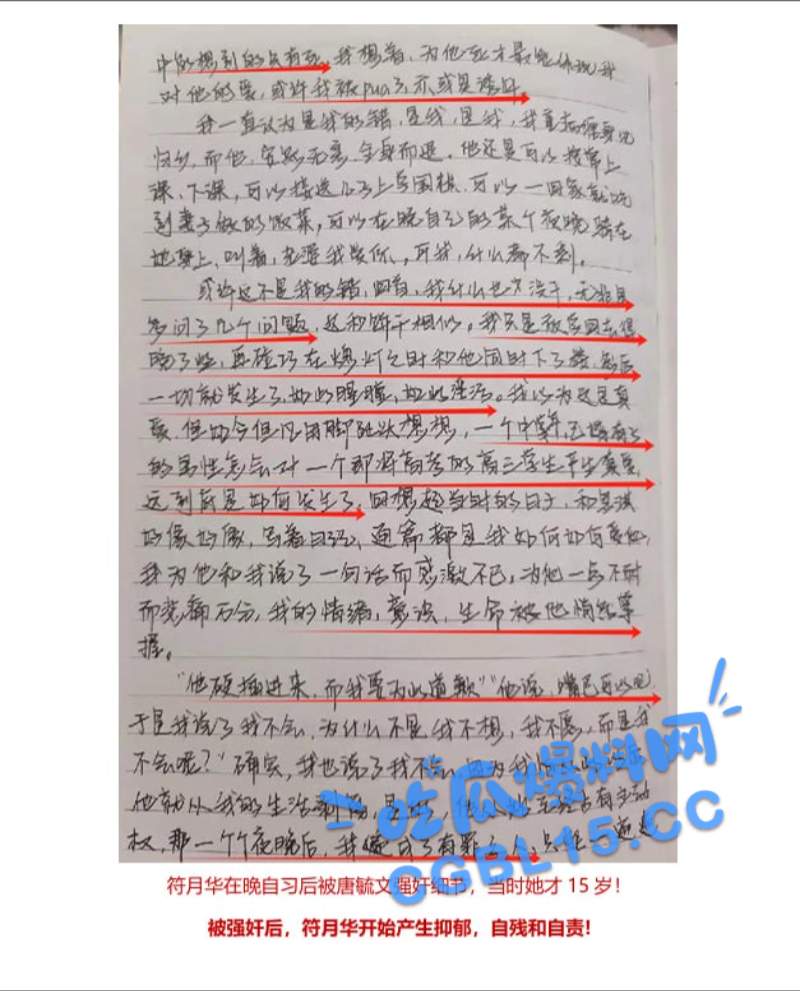 中能想到的只有死。我想着，为他死才最能体现我
对他的爱，或许我被pua了，亦或是洗脑。
我一直认为是我的错，是我，是我，我
而他，安然无恙，全身而退。他还是可以按常上
课、下课，可以接送儿子上，可以一回家就吃
到妻子做的饭菜，可以在晚自习的某个夜晚骑在
她身上，叫着，可我，什么都不剩。
或许这不是我的错，我什么也没干，无非是
多问了几个问题，这和饼干相似。我只是放学回去得
晚了些，再碰巧在熄灯之时和他同时下了楼，然后
一切就发生了，如此，如此。我以为这是真
爱，但如今但凡用脚趾头想想，一个中年，已婚有子
的男性怎会对一个即将高考的高三学生产生真爱
这到底是如何发生的，回想起当时的日子，和
好像好像，写着日记，通篇都是我如何如何爱他，
我为他和我说了一句话而感激不已，为他一点不耐
而万分，我的情绪，意识，生命被他悄然掌
握。
“他硬插进来，而我要为此道歉”“他说，嘴巴可以吧
于是我说了我不会，为什么不是我不想，我不愿，而是我
不会呢？”确实，我也说了我不会，因为我
他就从我的生活剥，他从始至终占有主动
权，那一个个夜晚后，我变成了有罪之人，只
吃瓜爆料网
CGBL15.CC
符月华在晚自习后被唐毓文强奸细节，当时她才 15 岁！
被强奸后，符月华开始产生抑郁，自残和自责！